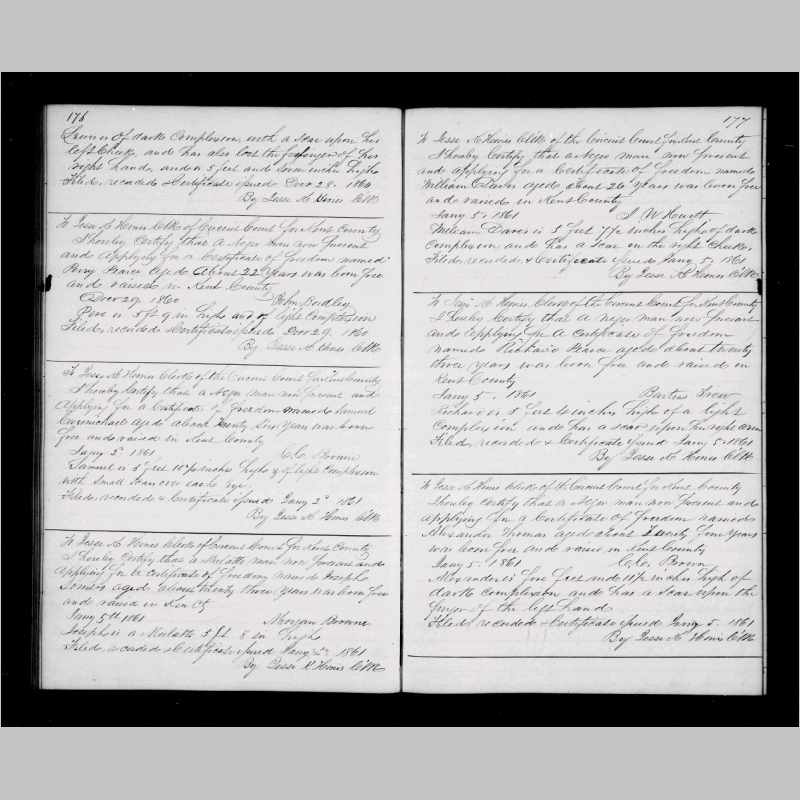 176
of dark Complexion with a Scar upon his
left Cheek, and has also lost the of his
right hand, and is 5 feet and inches high
Filed, recorded & Certificate issued Decr 28. 1860
By Jesse K Hines Clk
To Jesse K Hines Clk of Circuit Court for Kent County
I hereby Certify that a Negro man now present
and applying for a Certificate of Freedom named
Perry Pearce aged about 22 years was born free
and raised in Kent County
Decr 29. 1860 John Bordley
Perry is 5 ft 9 in high and of light Complexion
Filed, recorded & Certificate issued Decr 29. 1860
By Jesse K Hines Clk
To Jesse K Hines Clerk of the Circuit Court for Kent County
I hereby Certify that a Negro man now present and
Applying for a Certificate of freedom named Samuel
Carmichael aged about twenty Six years was born
free and raised in Kent County
Jany 2d 1861 Brown
Samuel is 5 feet inches high & of light Complexion
with Small Scar over each eye
Filed, recorded & Certificate issued Jany 2d 1861
By Jesse K Hines Clk
To Jesse K Hines Clerk of Circuit Court for Kent County
I hereby Certify that a Mulatto man now present and
Applying for a certificate of freedom named Joseph
aged about twenty three years was born free
and raised in Co
Jany 5th 1861 Morgan Browne
Joseph is a Mulatto 5 ft 8 in high
Filed, recorded & Certificate issued Jany 1861
By Jesse K Hines Clk
177
To Jesse K Hines Clk of the Circuit Court for Kent County
I hereby Certify that a Negro man now present
and applying for a Certificate of freedom named
William aged about 26 years was born free
and raised in Kent County
Jany 5. 1861 W Hewitt
William is 5 feet 7 1/2 inches high, of dark
Complexion and has a Scar on the right Cheek.
Filed, recorded, & Certificate issued Jany 5, 1861
By Jesse K Hines Clk
To Jesse K Hines Clerk of the Circuit Court for Kent County
I Hereby Certify that a negro man now present
and applying for a Certificate of freedom
named Richard Pearce aged about twenty
three years was born free and raised in
Kent County
Jany 5. 1861
Richard is 5 feet 6 inches high of a light
Complexion and has a scar upon the right arm
Filed, recorded & Certificate issued Jany 5. 1861
By Jesse K Hines Clk
To Jesse K Hines Clerk of the Circuit Court for Kent County
I hereby certify that a Negro man now present and
applying for a Certificate of freedom named
Alexander Thomas aged about Twenty four years
was born free and raised in Kent County
Jany 5. 1861 Brown
Alexander is five feet and inches high of
dark complexion and has a Scar upon the
finger of the left hand
Filed, recorded & Certificate issued Jany 5. 1861
By Jesse K Hines Clk